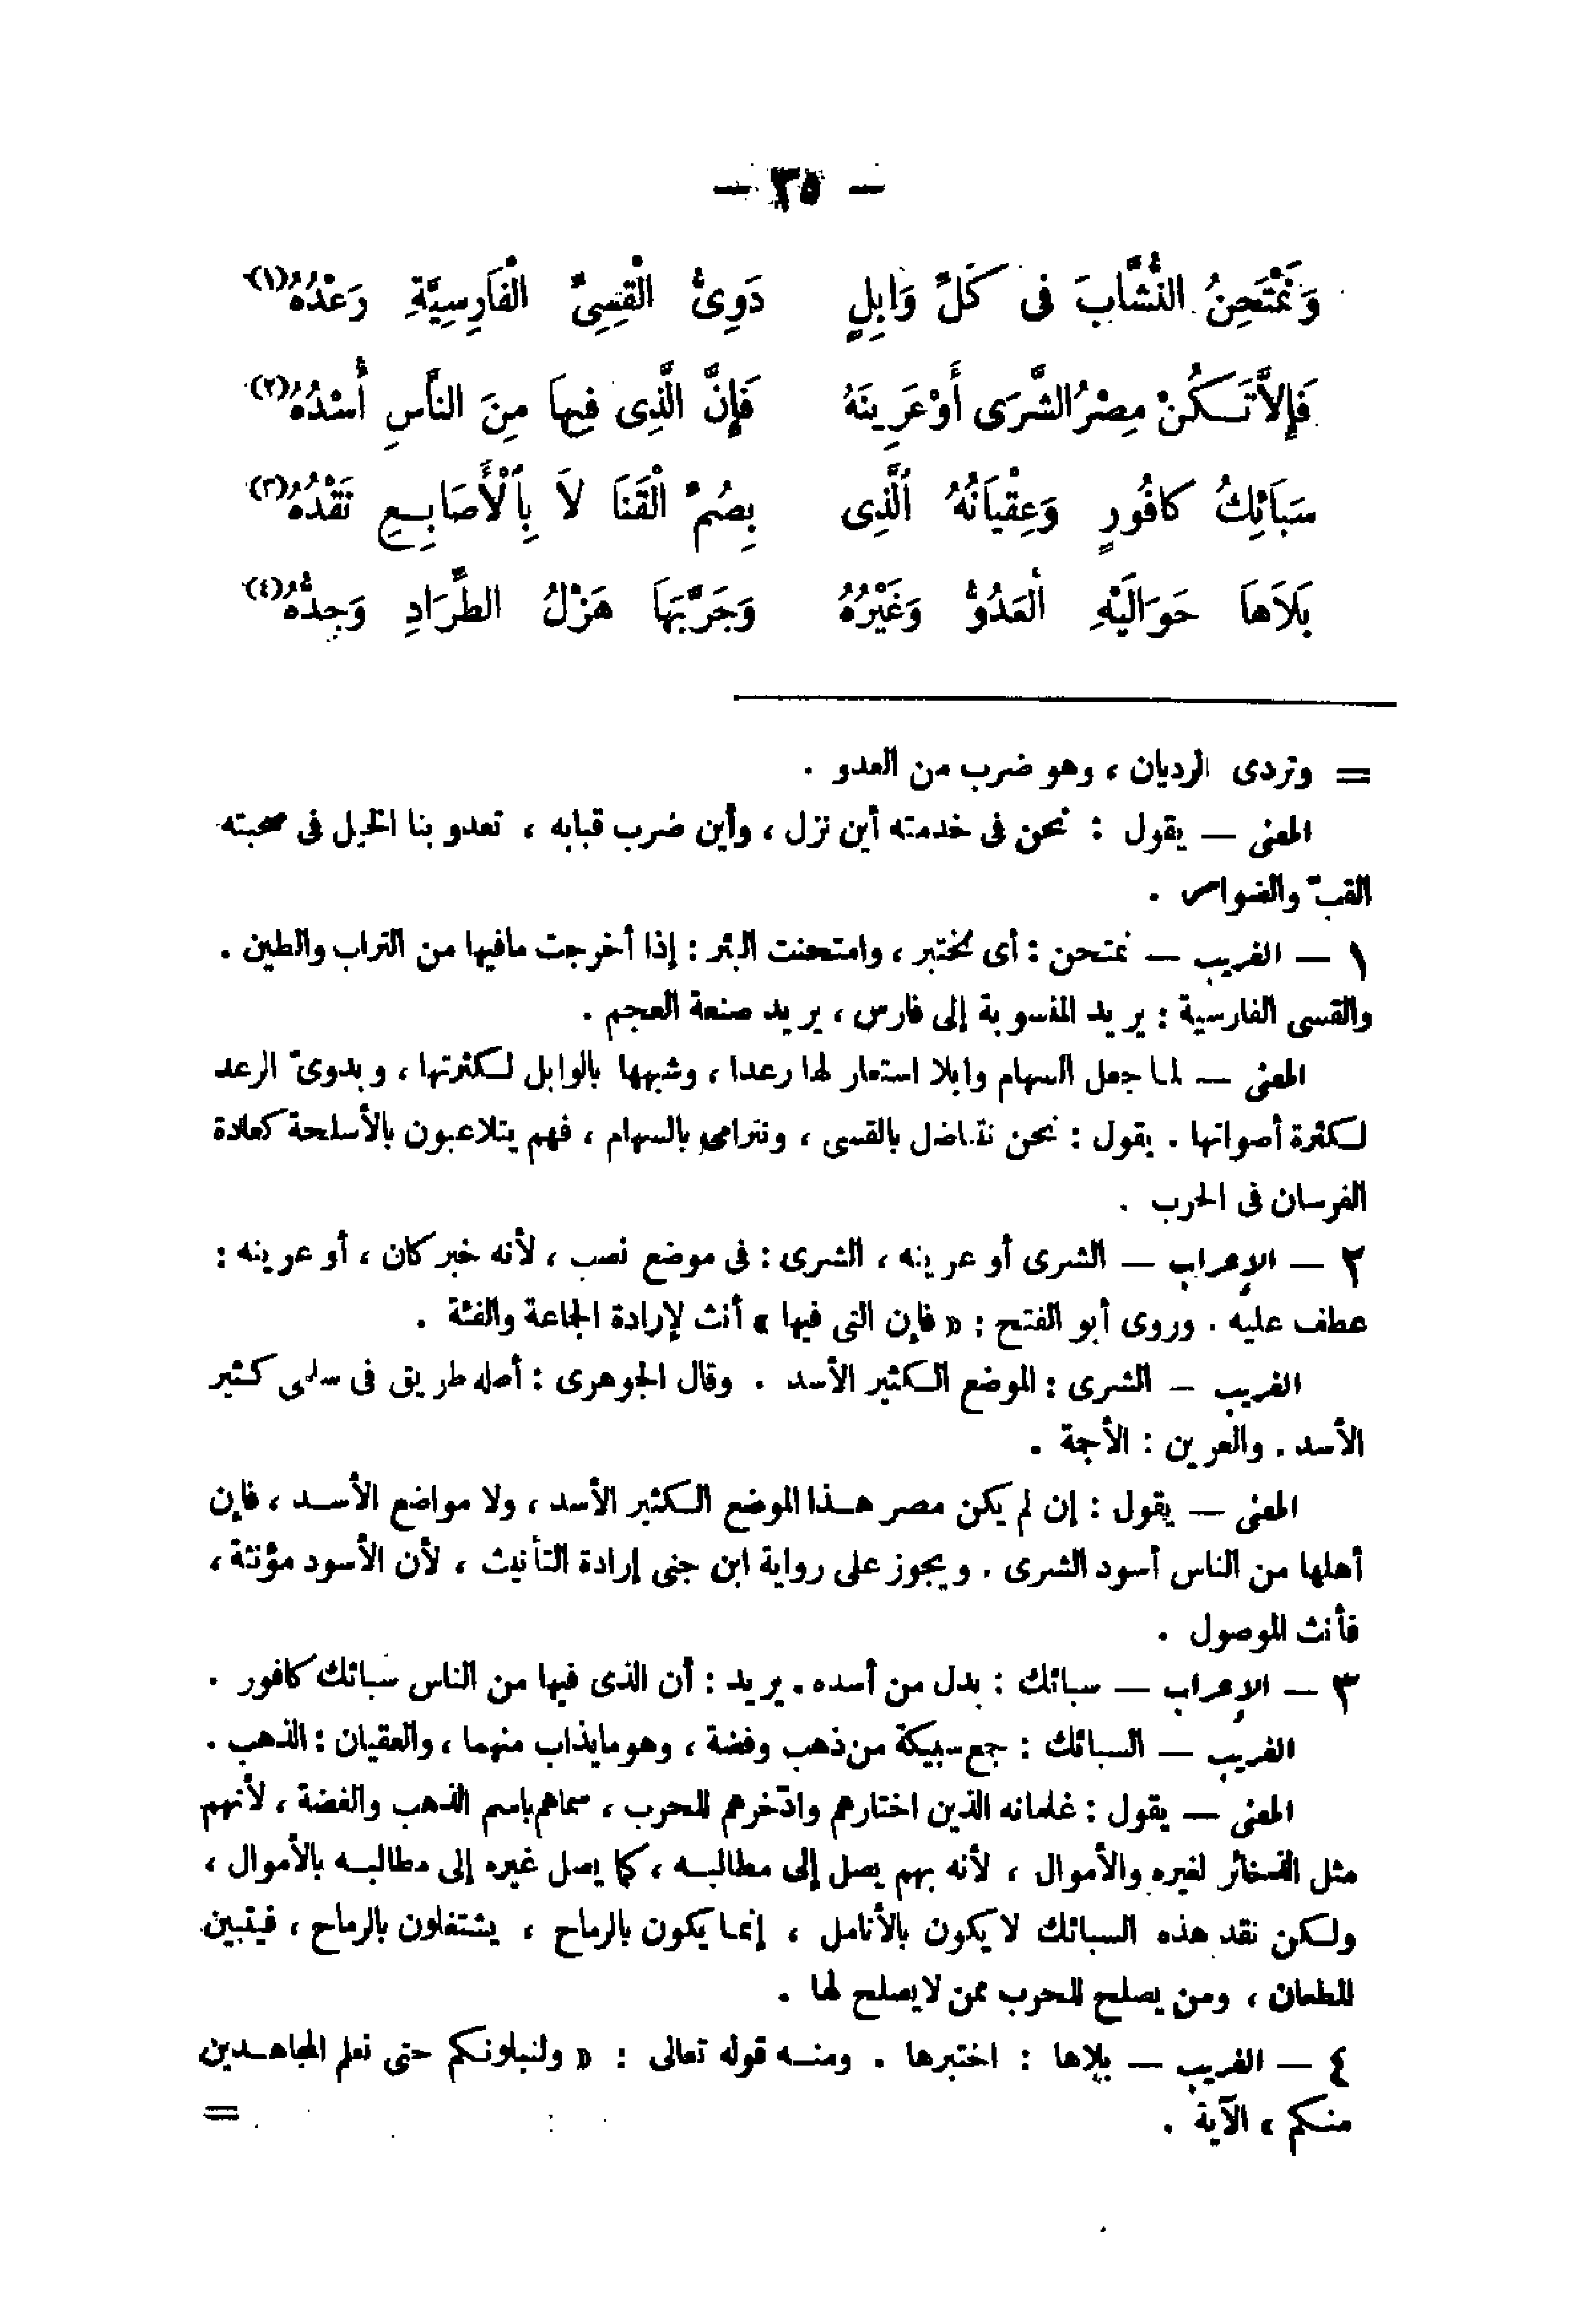 — ٣٥ —
وَنَمْتَحِنُ النُّشَّابَ فى كُلِّ وَابِلٍ دَوِىُّ الْقِسِىِّ الْفَارِسِيَّةِ رَعْدُهُ(١)
فَإِلاَّ تَـكُنْ مِصْرُ الشَّرَى أَوْ عَرِينَهُ فَإِنَّ الَّذِى فِيهاَ مِنَ النَّاسِ أُسْدُهُ(٢)
سَبَائِكُ كافُورٍ وَعِقْيَانُهُ الَّذِى بِصُمِّ الْقَنَا لاَ بِالْأَصَابِـعِ نَقْدُهُ(٣)
بَلاَهاَ حَوَالَيْهِ الْعَدُوُّ وَغَيْرُهُ وَجَرَّبَهَا هَزْلُ الطِّرَادِ وَجِدُّهُ(٤)
= وتردى الرديان ، وهو ضرب من العدو .
المعنى — يقول : نحن فى خدمته أين نزل ، وأين ضرب قبابه ، تعدو بنا الخيل فى صحبته
القبّ والضوامر .
١ — الغريب — نمتحن : أى نختبر ، وامتحنت البئر : إذا أخرجت مافيها من التراب والطين .
والقسى الفارسية : يريد المنسوبة إلى فارس ، يريد صنعة العجم .
المعنى — لما جعل السهام وابلا استعار لها رعدا ، وشبهها بالوابل لـكثرتها ، وبدوىّ الرعد
لـكثرة أصواتها . يقول : نحن نتناضل بالقسى ، ونترامى بالسهام ، فهم يتلاعبون بالأسلحة كعادة
الفرسان فى الحرب .
٢ — الإعراب — الشرى أو عرينه ، الشرى : فى موضع نصب ، لأنه خبر كان ، أو عرينه :
عطف عليه . وروى أبو الفتح : « فإن التى فيها » أنث لإرادة الجماعة والفئة .
الغريب — الشرى : الموضع الـكثير الأسد . وقال الجوهرى : أصله طريق فى سلمى كـثير
الأسد . والعرين : الأجمة .
المعنى — يقول : إن لم يكن مصر هـذا الموضع الـكثير الأسد ، ولا مواضع الأسـد ، فإن
أهلها من الناس أسود الشرى . ويجوز على رواية ابن جنى إرادة التأنيث ، لأن الأسود مؤنثة ،
فأنث الموصول .
٣ — الإعراب — سبائك : بدل من أسده . يريد : أن الذى فيها من الناس سبائك كافور .
الغريب — السبائك : جمع سبيكة من ذهب وفضة ، وهو مايذاب منهما ، والعقيان : الذهب .
المعنى — يقول : غلمانه الذين اختارهم وادّخرهم للحرب ، سماهم باسم الذهب والفضة ، لأنهم
مثل الذخائر لغيره والأموال ، لأنه بهم يصل إلى مطالبـه ، كما يصل غيره إلى مطالبـه بالأموال ،
ولـكن نقد هذه السبائك لا يكون بالأنامل ، إنما يكون بالرماح ، يشتغلون بالرماح ، فيتبين
للطعان ، ومن يصلح للحرب ممن لايصلح لها .
٤ — الغريب — بلاها : اختبرها . ومنـه قوله تعالى : « ولنبلونـكم حتى نعلم المجاهـدين
منـكم » الآية . =